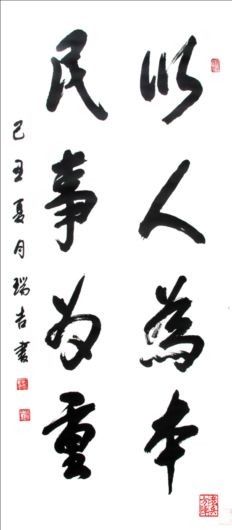 以人為本
民事为重
己丑夏月瑞吉書